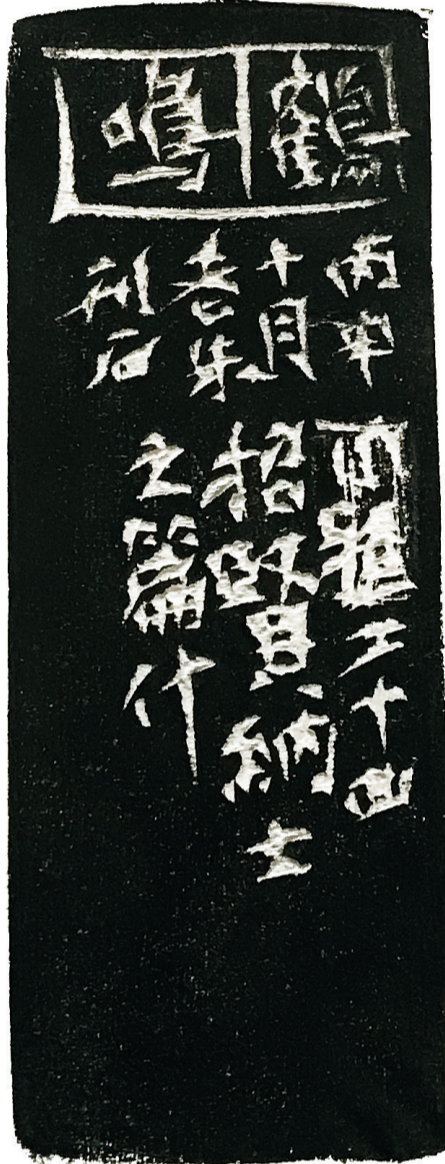 鶴鳴
丙申
十月
老朱
刊石
小雅二十四
招賢納士
之篇什